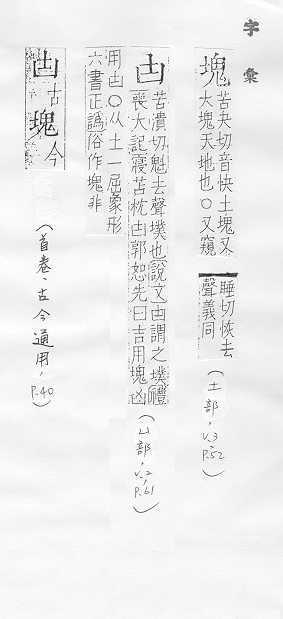 字彙
塊
苦夬切音快土塊又
大塊天地也○又窺
睡切恢去
聲義同
(土部,v.3,p.52)
凷
苦潰切魁去聲墣也說文凷謂之墣禮
喪大記寢苫枕凷郭恕先曰吉用塊凶
用凷○从土一屈象形
六書正譌俗作塊非
(凵部,v.2,p.61)
凷古塊今
(首卷、古今通用,p.40)